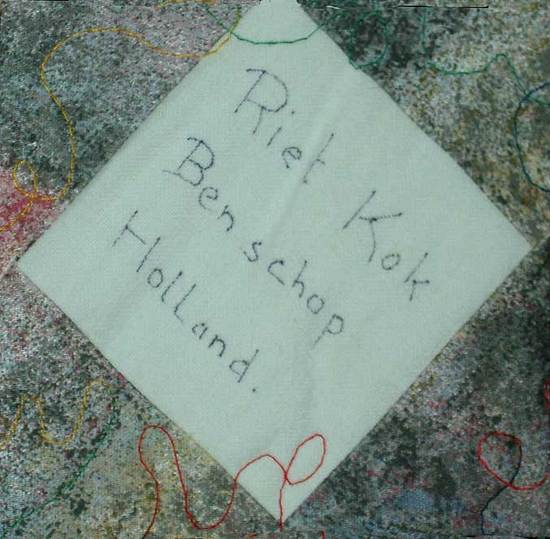 Riet Kok
Benschop
Holland.